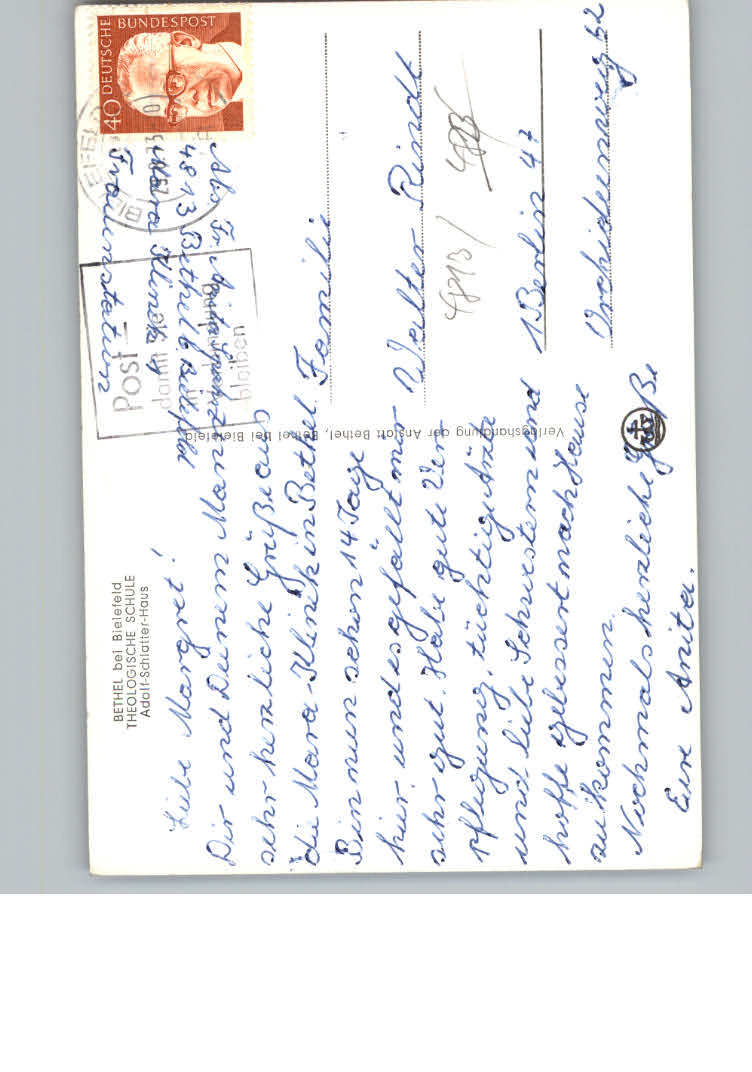 BETHEL bei Bielefeld
THEOLOGISCHE SCHULE
Adolf-Schlatter-Haus
Liebe Margret!
Dir und Deinem Mann
sehr herzliche Grüße aus
die Mara-Klinik in Bethel.
Bin nun schon 14 Tage
hier und es gefällt mir
sehr gut. Habe gute Ver
pflegung, tüchtige Ärzte
und liebe Schwestern und
hoffe gebessert nach Hause
zu kommen.
Nochmals herzliche Grüße
Eure Anita.
Verlagshandlung der Anstalt Bethel, Bethel bei Bielefeld
Abs. Fr. Anita
4813 Bethel b. Bielefeld
Mara Klinik
Frauenstation
Post –
damit Sie
in
bleiben
DEUTSCHE BUNDESPOST
40
BIELEFELD
Familie
Walter Rindt
4813/
1 Berlin 47
Orchideenweg 52